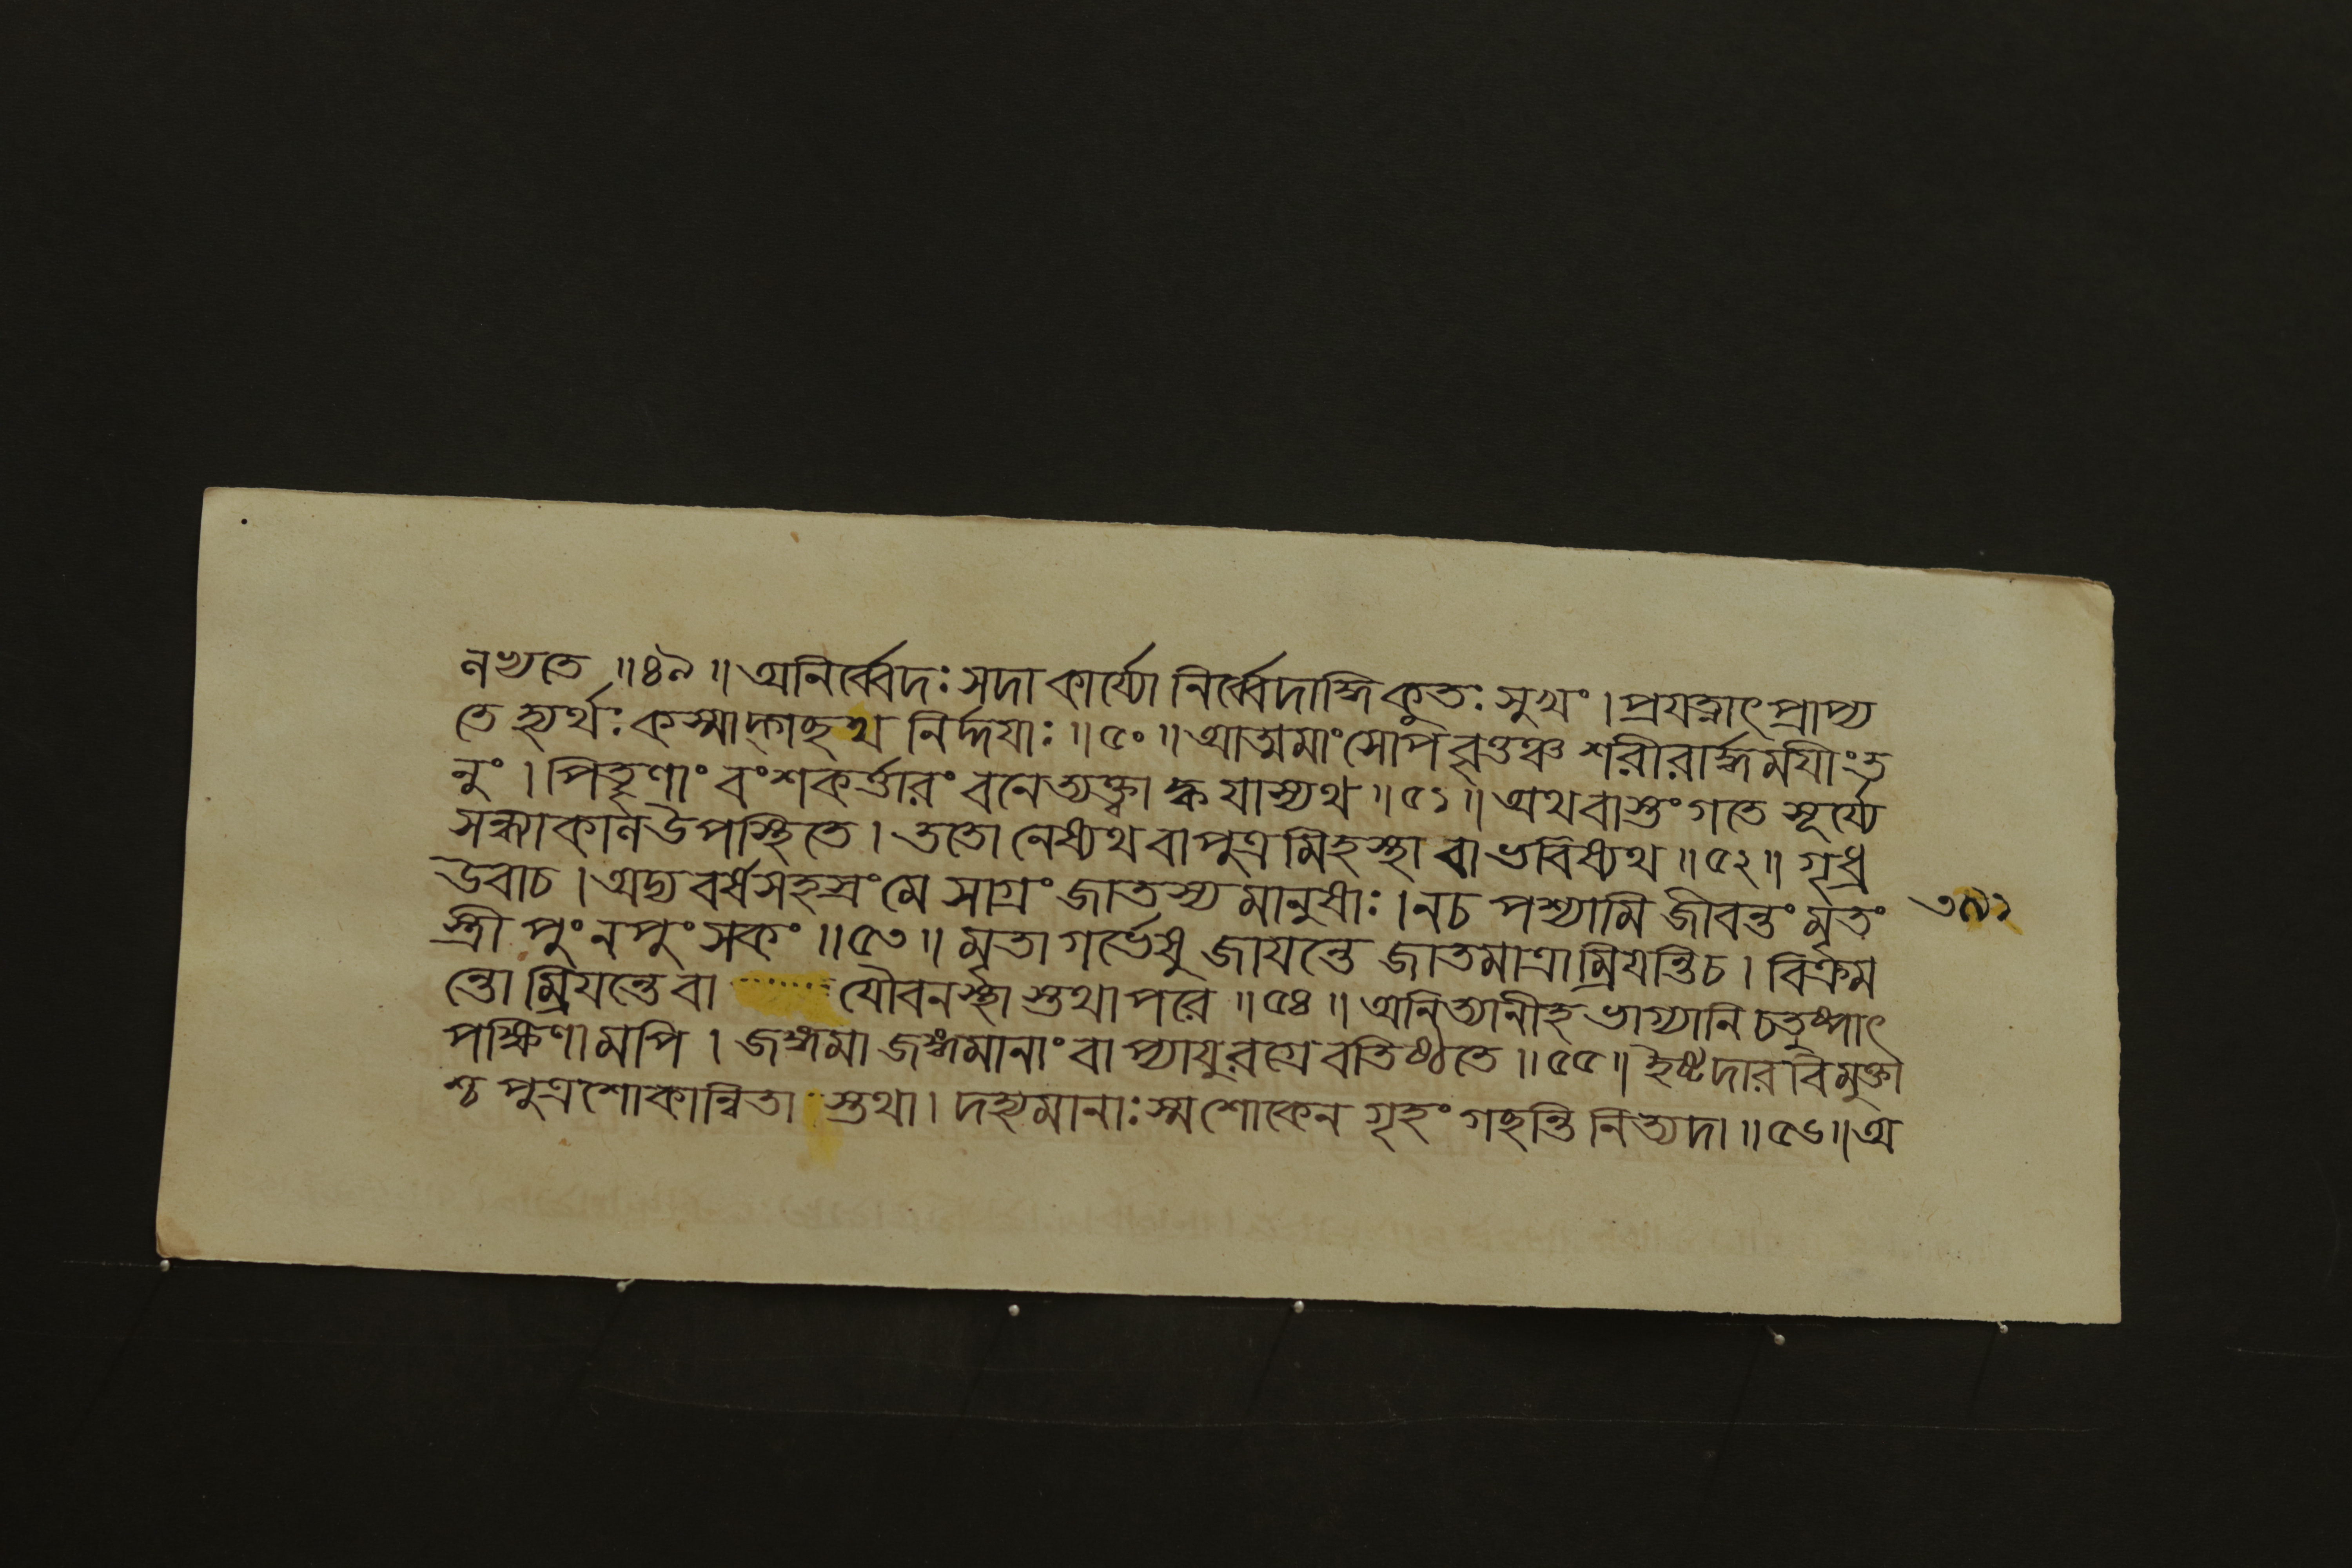 নভ্যতে ॥ ৪৯ ॥ অনির্ব্বেদঃ সদা কার্য্যো নির্ব্বেদাদ্দি কুতঃ সুখং । প্রযত্নাৎ প্রাপ্য
তে হ্যর্থঃ কস্মাদ্গছথ নির্দ্দযাঃ ॥ ৫০ ॥ আত্মমাংসোপবৃওঞ্চ শরীরার্দ্ধমযীং ত
নুং । পিতৃণাং বংশকর্ত্তারং বনে ত্যক্ত্বা ক্ব যাস্যথ ॥ ৫১ ॥ অথবাস্তং গতে সূর্য্যে
সন্ধ্যাকান উপস্থিতে । ততো নেষ্যথ বা পুত্রমিহস্থা বা ভবিষ্যথ ॥ ৫২ ॥ গৃধ্র
উবাচ । অদ্য বর্ষসহস্রং মে সাগ্রং জাতস্য মানুষাঃ । ন চ পশ্যামি জীবন্তং মৃতং
স্ত্রী পুংনপুংসকং ॥ ৫৩ ॥ মৃতা গর্ভেষু জাযন্তে জাতমাত্রা ম্রিযন্তি চ । বিক্রম
ন্তো ম্রিযন্তে বা ....... যৌবনস্থা স্তথাপরে ॥ ৫৪ ॥ অনিত্যানীহ ভাগ্যানি চতুষ্পাৎ
পক্ষিণামপি । জঙ্গমা জঙ্গমানাং বাপ্যাযুরগ্রেবতিষ্ঠতে ॥ ৫৫ ॥ ইষ্টদারবিমুক্তা
শ্চ পুত্রশোকান্বিতা স্তথা । দহ্যমানাঃ স্ম শোকেন গৃহং গছন্তি নিত্যদা ॥ ৫৬ ॥ অ